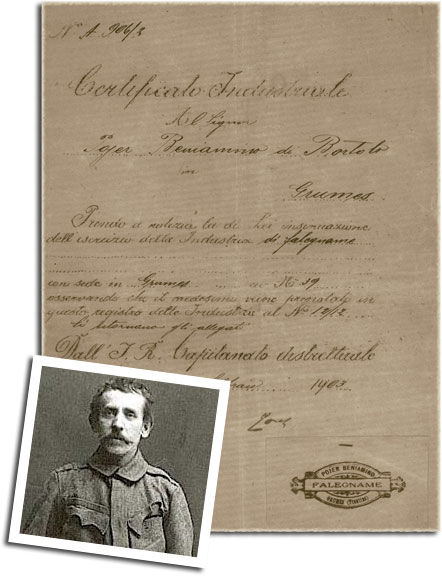 N° A 906/2
Certificato Industriale
Al Signor
Pojer Beniamino di Bortolo
in
Grumes
Prendo a notizia la di Lei insinuazione
dell'esercizio della Industria di falegname
con sede in Grumes al N° 59
osservando che il medesimo viene pregistrato in
questo registro delle Industrie al N° 19/2
Si ritornano gli allegati
Dall' I. R. Capitanato distrettuale
1903
POJER BENIAMINO
FALEGNAME
GRUMES (Trentino)